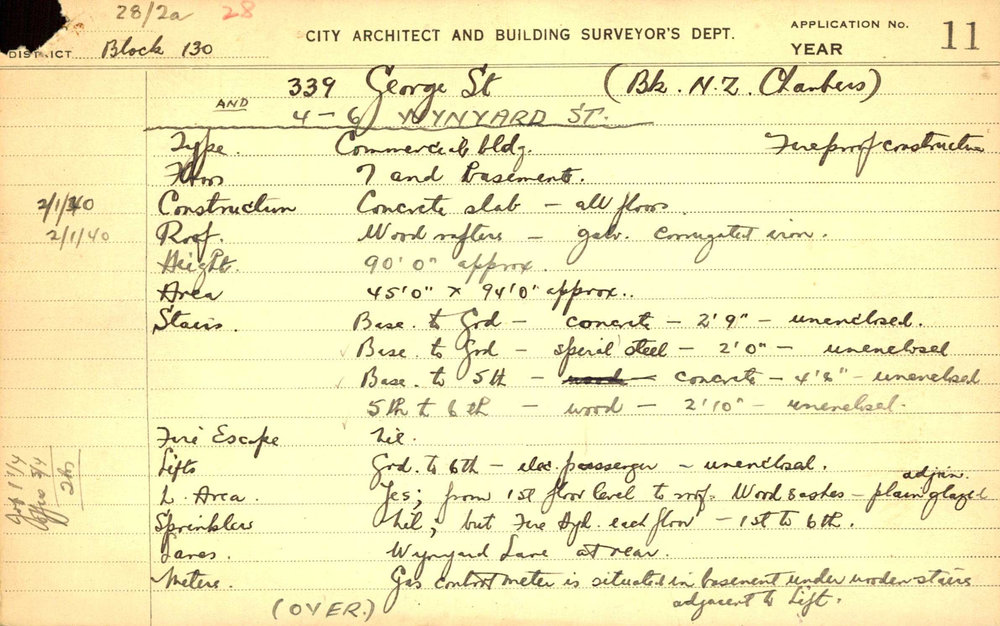 28/2a 28
DISTRICT Block 130 CITY ARCHITECT AND BUILDING SURVEYOR'S DEPT. APPLICATION No. YEAR 11
339 George St (Bk. N.Z. Chambers)
AND
4-6 WYNYARD ST.
Type. Commercial bldg. Fireproof construction
Floors 7 and basements.
2/1/40 Construction Concrete slab - all floors
2/1/40 Roof. Wood rafters - galv. corrugated iron.
Height. 90'0" approx.
Area 45'0" x 94'0" approx..
Stairs. Base. to Grd - concrete - 2'9" - unenclosed.
Base. to Grd - spiral steel - 2'0" - unenclosed
Base. to 5th - wood - concrete - 4'8" - unenclosed
5th to 6th - wood - 2'10" - unenclosed.
Fire Escape Nil.
Lifts Grd. to 6th - elec. passenger - unenclosed.
adjoin.
L. Area. Yes; from 1st floor level to roof. Wood sashes - plain glazed
Sprinklers Nil; but Fire Hyd. each floor - 1st to 6th.
Lanes. Wynyard Lane at rear.
Meters. Gas control meter is situated in basement under wooden stairs
(OVER.) adjacent to Lift.
2hs